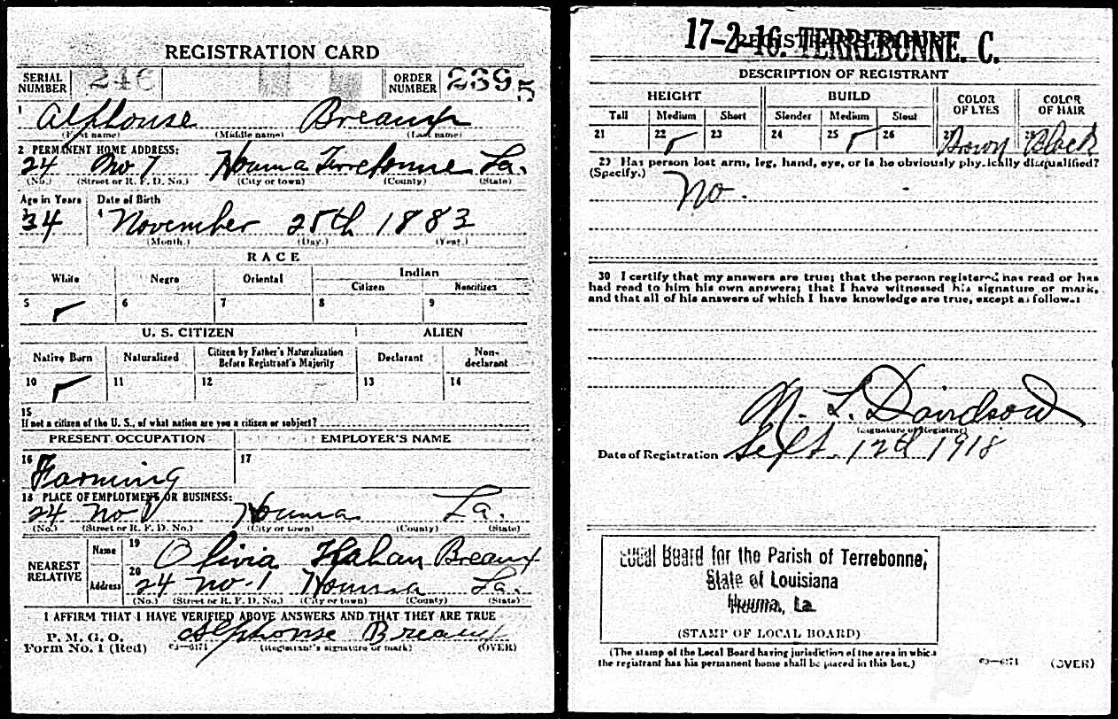 REGISTRATION CARD
SERIAL NUMBER 246 ORDER NUMBER 2395
1 Alphonse Breaux
(First name) (Middle name) (Last name)
2 PERMANENT HOME ADDRESS:
24 No 1 Houma Terrebonne La.
(No.) (Street or R. F. D. No.) (City or town) (County) (State)
Age in Years Date of Birth
3 34 4 November 25th 1883
(Month.) (Day.) (Year.)
RACE
White Negro Oriental Indian
Citizen Noncitizen
5 6 7 8 9
U. S. CITIZEN ALIEN
Native Born Naturalized Citizen by Father's Naturalization Before Registrant's Majority Declarant Non-declarant
10 11 12 13 14
15
If not a citizen of the U. S., of what nation are you a citizen or subject?
PRESENT OCCUPATION EMPLOYER'S NAME
16 Farming 17
18 PLACE OF EMPLOYMENT OR BUSINESS:
24 No 1 Houma La.
(No.) (Street or R. F. D. No.) (City or town) (County) (State)
NEAREST RELATIVE
Name 19 Olivia Breaux
Address 20 24 No-1 Houma La.
(No.) (Street or R. F. D. No.) (City or town) (County) (State)
I AFFIRM THAT I HAVE VERIFIED ABOVE ANSWERS AND THAT THEY ARE TRUE
P. M. G. O.
Form No. 1 (Red) 03-6171 Alphonse Breaux
(Registrant's signature or mark) (OVER)
17-2-16. TERREBONNE. C.
DESCRIPTION OF REGISTRANT
HEIGHT BUILD COLOR OF EYES COLOR OF HAIR
Tall Medium Short Slender Medium Stout
21 22 23 24 25 26 27 Brown 28 Black
29 Has person lost arm, leg, hand, eye, or is he obviously physically disqualified?
(Specify.)
No.
30 I certify that my answers are true; that the person registered has read or has
had read to him his own answers; that I have witnessed his signature or mark,
and that all of his answers of which I have knowledge are true, except as follows:
N. L. Davidson
(Signature of Registrar)
Date of Registration Sept. 12th 1918
Local Board for the Parish of Terrebonne,
State of Louisiana
Houma, La.
(STAMP OF LOCAL BOARD)
(The stamp of the Local Board having jurisdiction of the area in which
the registrant has his permanent home shall be placed in this box.)
03-6171 (OVER)